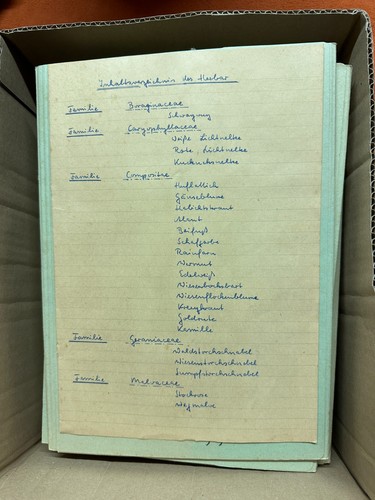 Inhaltsverzeichnis des Herbar
Familie Boraginaceae
Familie Caryophyllaceae
Weiße Lichtnelke
Rote Lichtnelke
Kuckucksnelke
Familie Compositae
Huflattich
Gänseblume
Alant
Beifuß
Schafgarbe
Rainfarn
Wermut
Edelweiß
Wiesenbocksbart
Wiesenflockenblume
Kreuzkraut
Goldrute
Kamille
Familie Geraniaceae
Waldstorchschnabel
Wiesenstorchschnabel
Sumpfstorchschnabel
Familie Malvaceae
Stockrose
Wegmalve